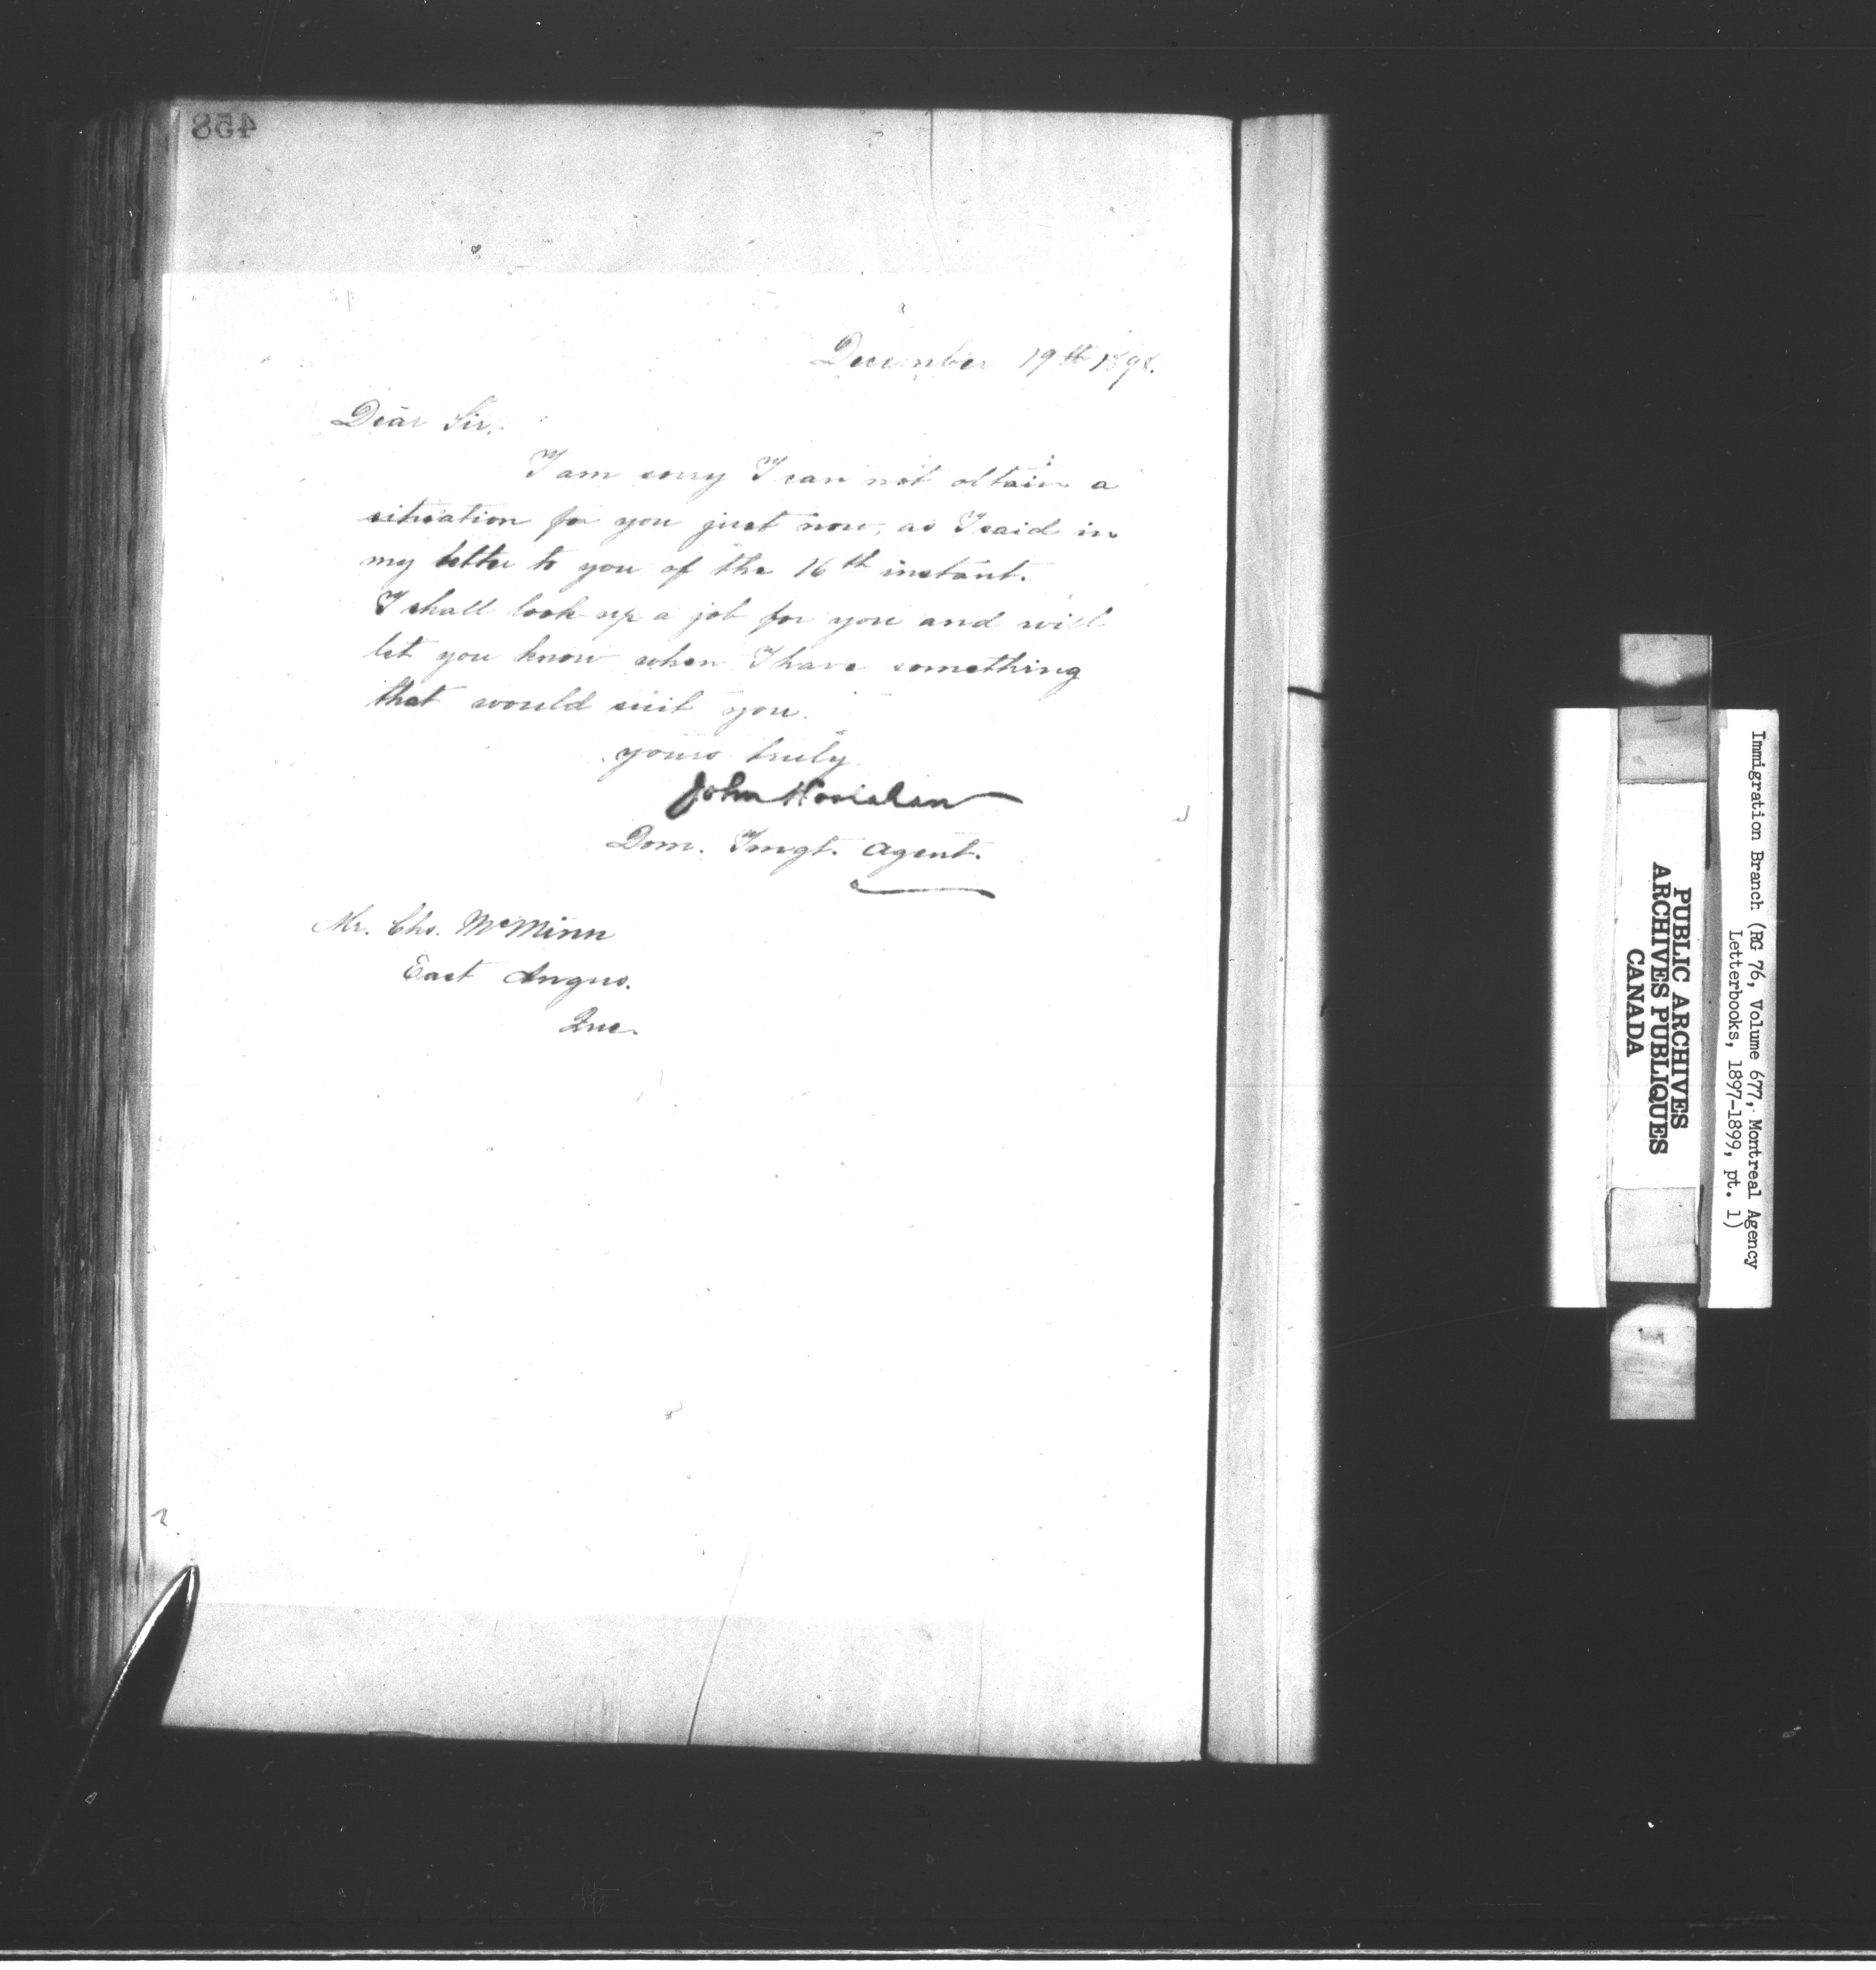 458
December 19th 1898.
Dear Sir,
I am sorry I can not obtain a
situation for you just now, as I said in
my letter to you of the 16th instant.
I shall look up a job for you and will
let you know when I have something
that would suit you.
yours truly
John Hoolahan
Dom. Imgt. Agent.
Mr. Chs. McMinn
East Angus.
Que.
PUBLIC ARCHIVES
ARCHIVES PUBLIQUES
CANADA
Immigration Branch (RG 76, Volume 677, Montreal Agency
Letterbooks, 1897-1899, pt. 1)